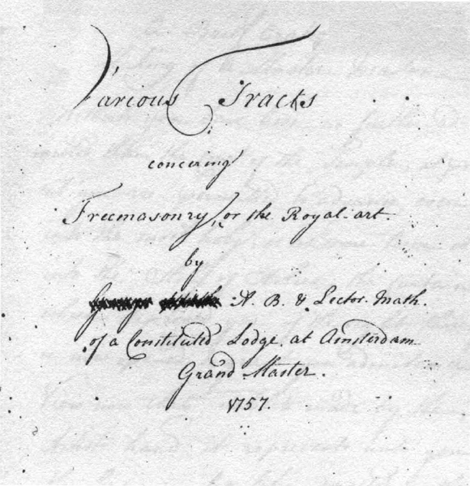 Various Tracts
concering
Freemasonry, or the Royal-art.
by
A. B. & Lector Math.
of a Constituted Lodge, at Amsterdam
Grand Master.
1757.